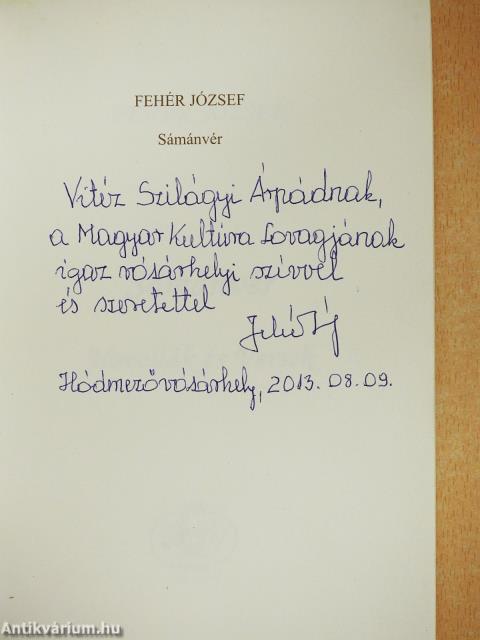 FEHÉR JÓZSEF
Sámánvér
Vitéz Szilágyi Árpádnak,
a Magyar Kultúra Lovagjának
igaz vásárhelyi szívvel
és szeretettel
Hódmezővásárhely, 2013. 08. 09.
Antikvárium.hu